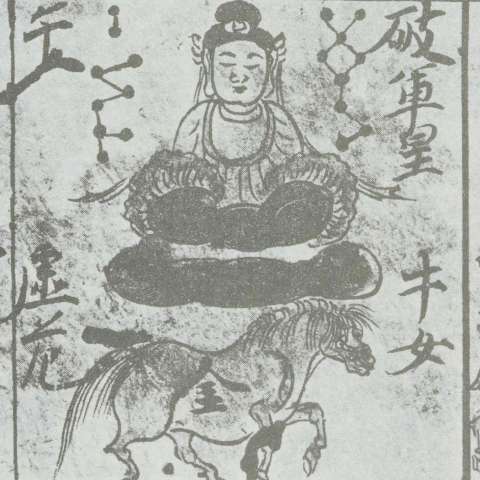 破軍星
牛女
虚危